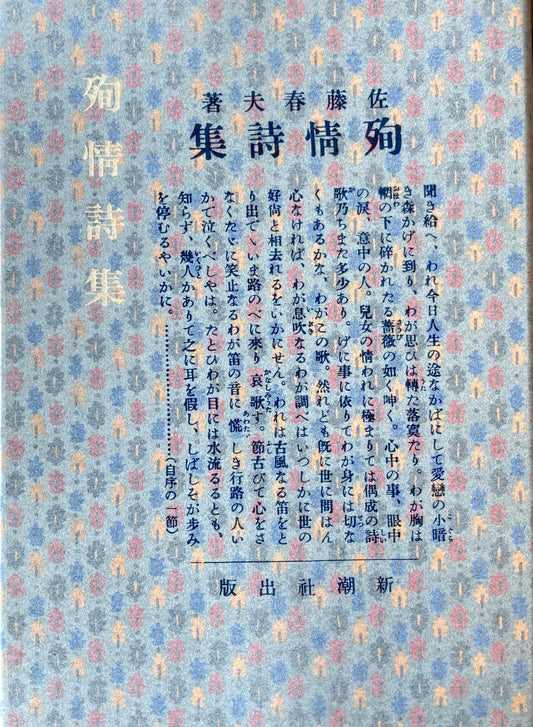 殉情詩集
佐藤春夫著
殉情詩集
聞き給へ、われ今日人生の途なかばにして愛戀の小暗
き森かげに到り、わが思ひは轉た落寞たり。わが胸は
輞の下に碎かれたる薔薇の如く呻く。心中の事、眼中
の涙、意中の人。兒女の情われに極まりては偶成の詩
歌乃ちまた多少あり。げに事に依りてわが身には切な
くもあるかな、わがこの歌。然れども旣に世に問はん
心なければ、わが息吹なるわが調べはいつしかに世の
好尙と相去れるをいかにせん。われは古風なる笛をと
り出でゝいま路のべに來り哀歌す。節古びて心をさ
なくたゞに笑止なるわが笛の音に慌しき行路の人い
かで泣くべしやは。たとひわが目には水流るるとも、
知らず、幾人かありて之に耳を假し、しばしそが歩み
を停むるやいかに。…………………………(自序の一節)
新潮社出版